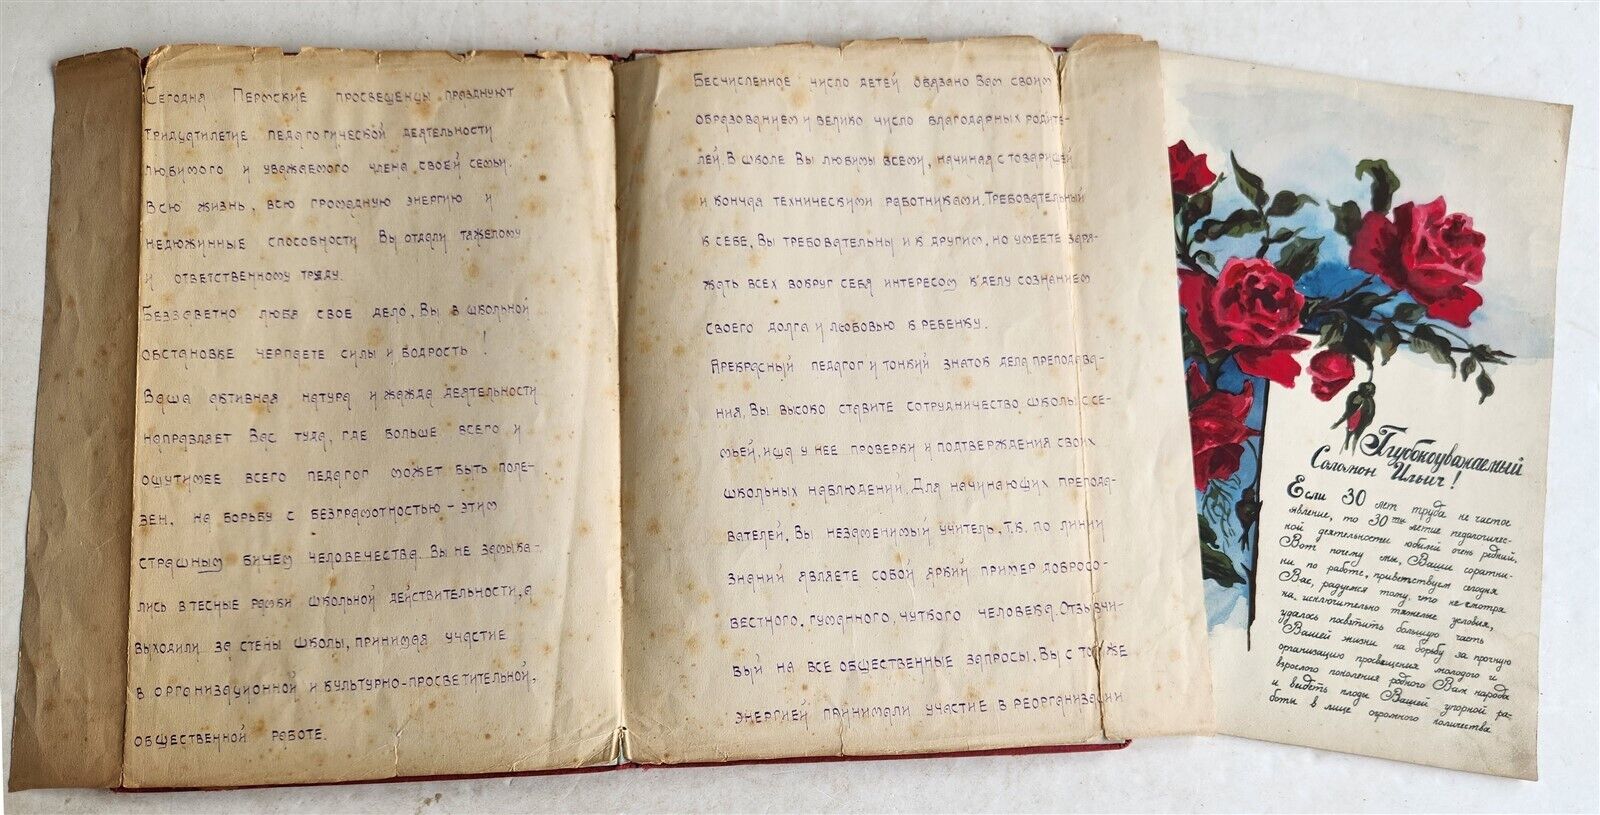 Сегодня Пермские просвещенцы празднуют
тридцатилетие педагогической деятельности
любимого и уважаемого члена своей семьи.
Всю жизнь, всю громадную энергию и
недюжинные способности Вы отдали тяжелому
и ответственному труду.
Беззаветно любя свое дело, Вы в школьной
обстановке черпаете силы и бодрость!
Ваша активная натура и жажда деятельности
направляет Вас туда, где больше всего и
ощутимее всего педагог может быть поле-
зен, на борьбу с безграмотностью - этим
страшным бичем человечества. Вы не замыка-
лись в тесные рамки школьной действительности, а
выходили за стены школы, принимая участие
в организационной и культурно-просветительной,
общественной работе.
Бесчисленное число детей обязано Вам своим
образованием и велико число благодарных родите-
лей. В школе Вы любимы всеми, начиная с товарищей
и кончая техническими работниками. Требовательный
к себе, Вы требовательны и к другим, но умеете заря-
жать всех вокруг себя интересом к делу сознанием
своего долга и любовью к ребенку.
Прекрасный педагог и тонкий знаток дела преподава-
ния, Вы высоко ставите сотрудничество школы с се-
мьей, ища у нее проверки и подтверждения своих
школьных наблюдений. Для начинающих препода-
вателей, Вы незаменимый учитель, т.к. по линии
знаний являете собой яркий пример добросо-
вестного, гуманного, чуткого человека. Отзывчи-
вый на все общественные запросы, Вы с той же
энергией принимали участие в реорганизации
Глубокоуважаемый
Соломон Ильич!
Если 30 лет труда не частое
явление, то 30ти летие педагогичес-
кой деятельности юбилей очень редкий.
Вот почему мы, Ваши соратни-
ки по работе, приветствуем сегодня
Вас, радуемся тому, что не смотря
на исключительно тяжелые условия,
удалось посвятить большую часть
Вашей жизни на борьбу за прочную
организацию просвещения молодого и
взрослого поколения родного Вам народа
и видеть плоды Вашей упорной ра-
боты в лице огромного количества